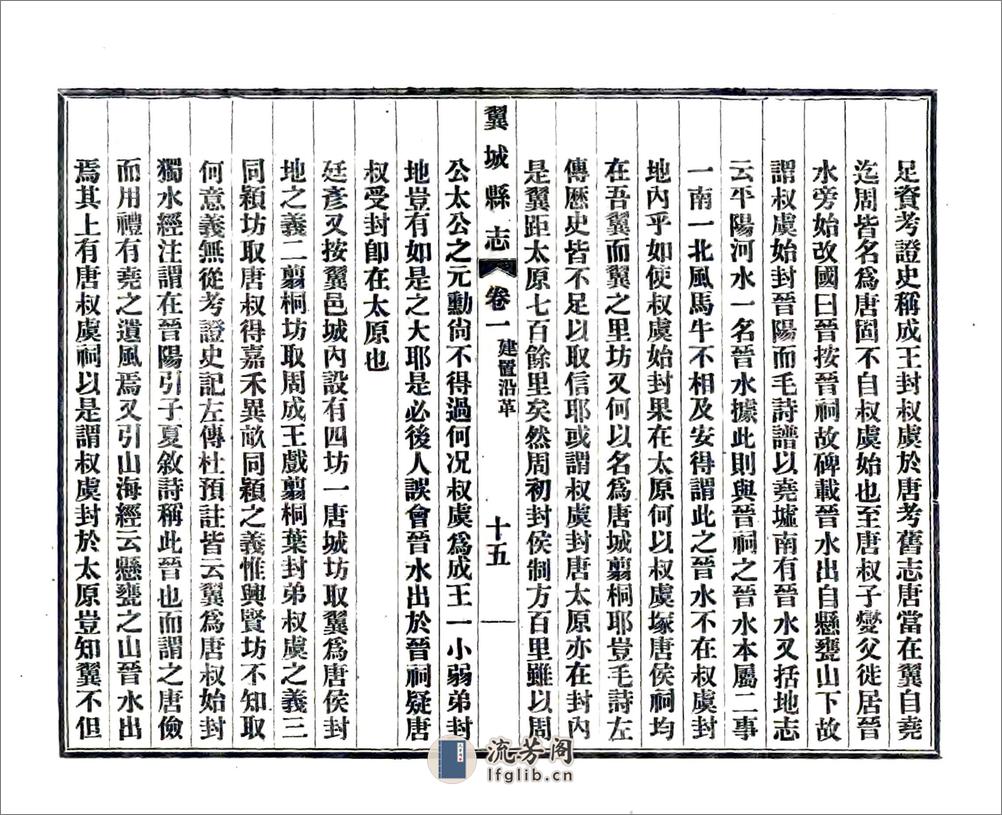 足資考證史稱成王封叔虞於唐考舊志唐當在翼自堯
迄周皆名爲唐固不自叔虞始也至唐叔子燮父徙居晉
水旁始改國曰晉按晉祠故碑載晉水出自懸甕山下故
謂叔虞始封晉陽而毛詩譜以堯墟南有晉水又括地志
云平陽河水一名晉水據此則與晉祠之晉水本屬二事
一南一北風馬牛不相及安得謂此之晉水不在叔虞封
地內乎如使叔虞始封果在太原何以叔虞塚唐侯祠均
在吾翼而翼之里坊又何以名爲唐城翦桐耶豈毛詩左
傳歷史皆不足以取信耶或謂叔虞封唐太原亦在封內
是翼距太原七百餘里矣然周初封侯制方百里雖以周
翼城縣志
卷一 建置沿革
十五
公太公之元勳尙不得過何况叔虞爲成王一小弱弟封
地豈有如是之大耶是必後人誤會晉水出於晉祠疑唐
叔受封卽在太原也
廷彥又按翼邑城內設有四坊一唐城坊取翼爲唐侯封
地之義二翦桐坊取周成王戲翦桐葉封弟叔虞之義三
同穎坊取唐叔得嘉禾異畝同穎之義惟興賢坊不知取
何意義無從考證史記左傳杜預註皆云翼爲唐叔始封
獨水經注謂在晉陽引子夏敘詩稱此晉也而謂之唐儉
而用禮有堯之遺風焉又引山海經云懸甕之山晉水出
焉其上有唐叔虞祠以是謂叔虞封於太原豈知翼不但
流芳阁
lfglib.cn